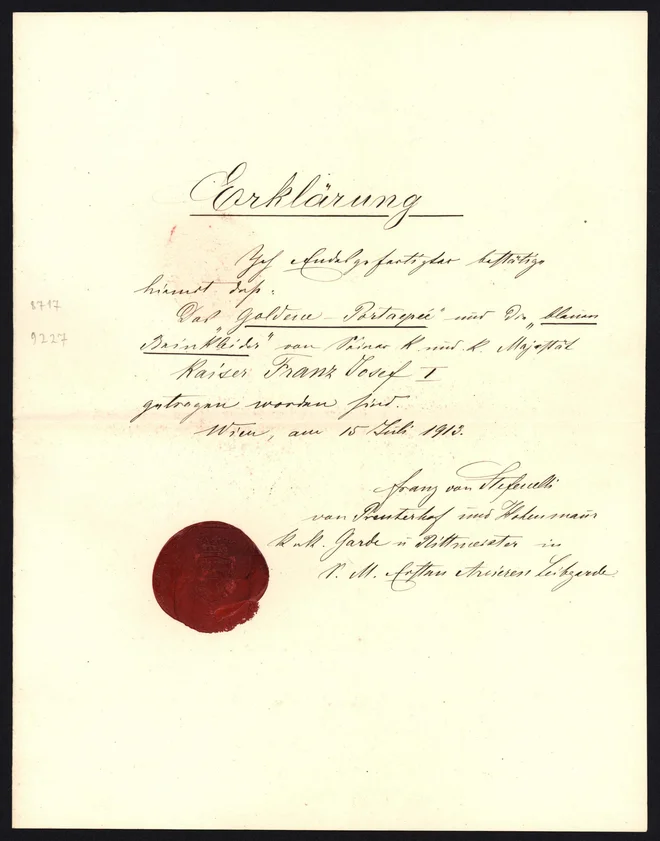 Erklärung
Ich Endesgefertigter bestätige
hiemit daß:
Das "Goldene - Portaepée" und die "blauen
Beinkleider" von Seiner K und K. Majestät
Kaiser Franz Josef I
getragen worden sind.
Wien, am 15 Juli 1913.
3717
9227
Franz von Stefenelli
von und Hohenmaur
K u k. Garde u Rittmeister in
S. M. Ersten Arcieren Leibgarde